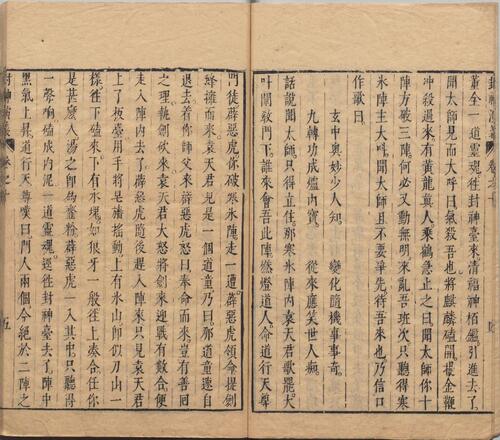 董全一道靈魂往封神臺來清福神栢鑑引進去了
聞太師見而大呼曰氣殺吾也將麒麟磕開提金鞭
冲殺過來有黃龍真人乘鶴急止之曰聞太師你十
陣方破三陣何必又動無明來亂吾班次只聽得寒
氷陣主大呼聞太師且不要爭先待吾來也乃信口
作歌曰
玄中奧妙少人知。 變化隨機事事奇。
九轉功成爐內寶。 從來應笑世人癡。
話說聞太師只得立住那寒氷陣內袁天君歌罷大
叶闡教門下誰來會吾此陣燃燈道人命道行天尊
門徒薜惡虎你破寒氷陣走一遭薜惡虎領命提劍
蜂擁而來袁天君見是一個道童乃曰那道童速自
退去着你師父來薜惡虎怒曰奉命而來豈有善回
之理執劍砍來袁天君大怒將劍來迎戰有數合便
走入陣內去了薜惡虎隨後趕入陣來只見袁天君
上了板臺用手將皂旛搖動上有氷山即似刀山一
樣往下磕來下有氷塊如狼牙一般往上奏合任你
是甚麽人湯之即為虀粉薜惡虎一入其中只聽得
一聲响磕成肉泥一道靈魂逕往封神臺去了陣中
黑氣上昇道行天尊嘆曰門人兩個今絕於二陣之
封神演義 卷之 五